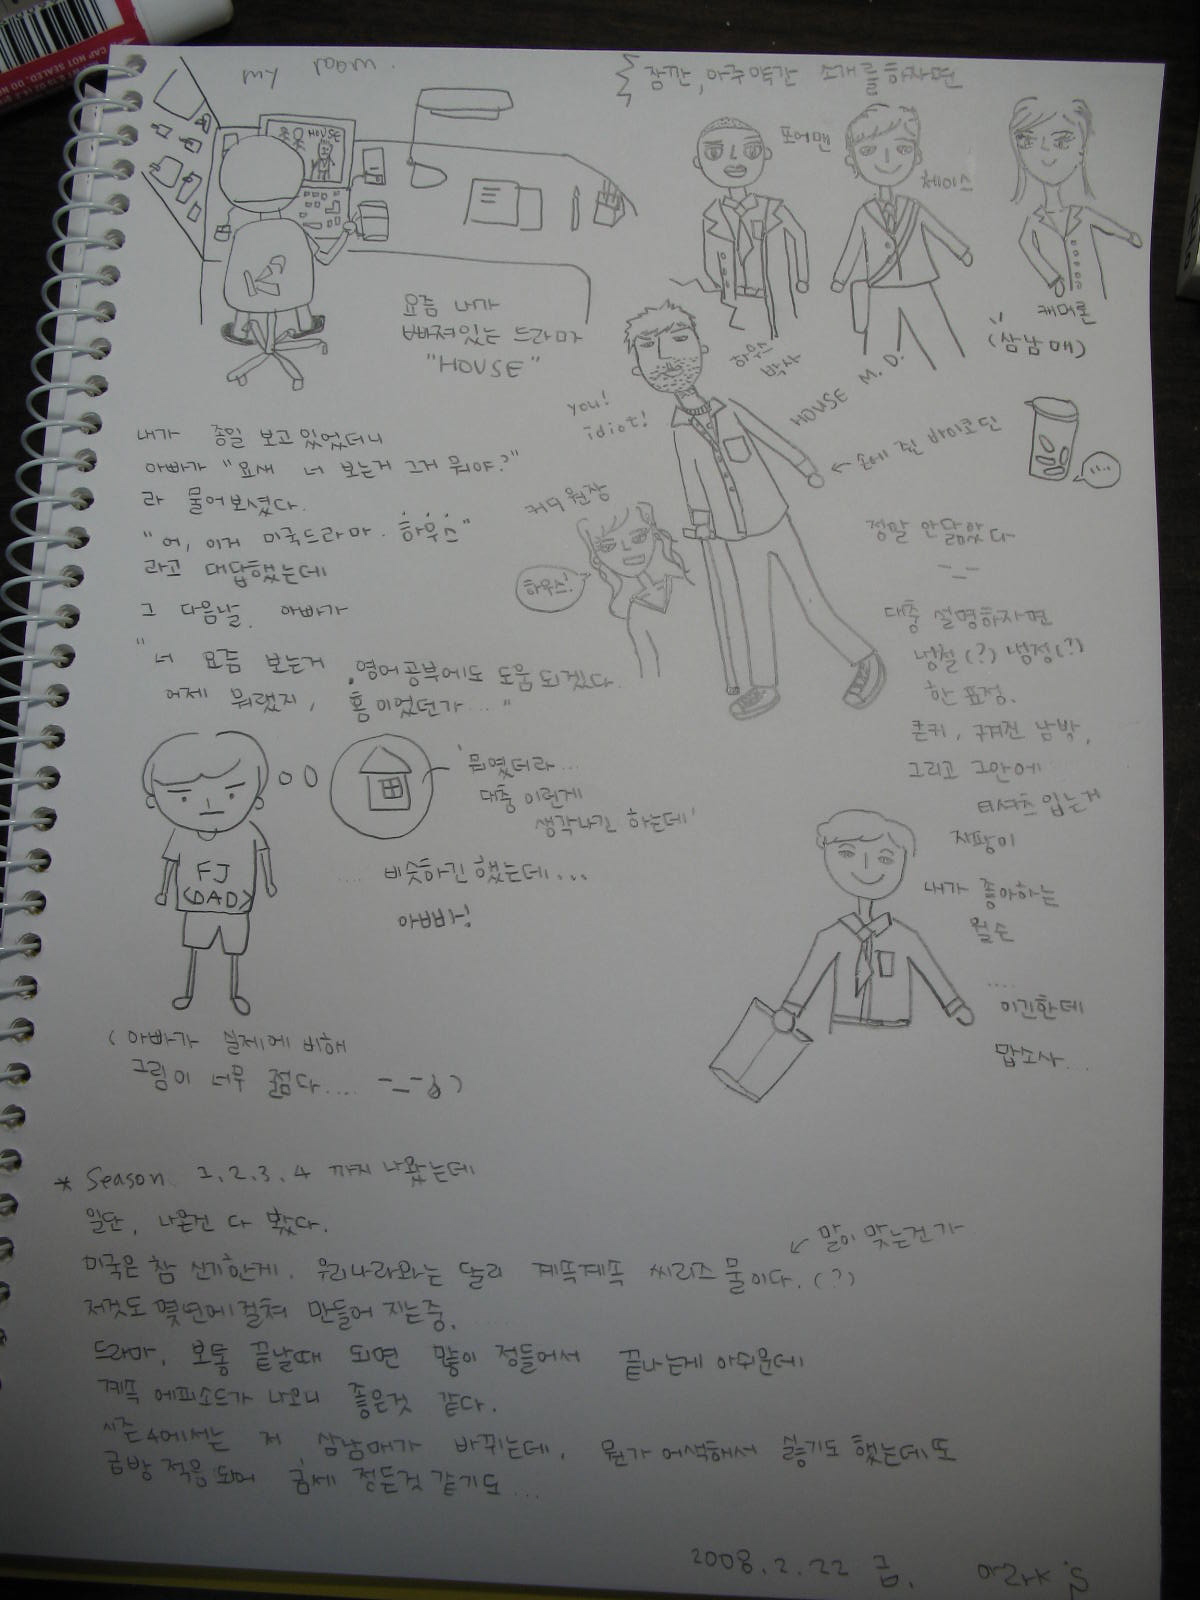 my room.
HOUSE
요즘 내가
빠져있는 드라마
"HOUSE"
내가 종일 보고 있었더니
아빠가 "요새 너 보는거 그거 뭐야?"
라 물어보셨다.
"어, 이거 미국드라마. 하우스"
라고 대답했는데
그 다음날, 아빠가
"너 요즘 보는거, 영어공부에도 도움 되겠다.
어제 뭐랬지, 홈이었던가...."
'뭐였더라...
대충 이런게
생각나긴 하는데'
.... 비슷하긴 했는데...
아빠빠!
FJ
<DAD>
(아빠가 실제에 비해
그림이 너무 젊다....
잠깐, 아주 약간 소개를 하자면
포어맨
체이스
캐머론
(삼남매)
하우스
박사
HOUSE M.D.
you!
idiot!
← 손에 쥔 바이코딘
...
커디 원장
하우스!
정말 안닮았다
-_-
대충 설명하자면
냉철(?) 냉정(?)
한 표정.
큰키, 구겨진 남방,
그리고 그안에
티셔츠 입는거
지팡이
내가 좋아하는
윌슨
....
이긴한데
맙소사...
* Season 1.2.3.4 까지 나왔는데
일단, 나온건 다 봤다.
↙ 말이 맞는건가
미국은 참 신기한게, 우리나라와는 달리 계속계속 씨리즈 물이다.(?)
저것도 몇년에 걸쳐 만들어 지는중.
드라마, 보통 끝날때 되면 많이 정들어서 끝나는게 아쉬운데
계속 에피소드가 나오니 좋은것 같다.
시즌4에서는 저 삼남매가 바뀌는데, 뭔가 어색해서 싫기도 했는데 또
금방 적응되어 금세 정든것 같기도...
2008.2.22 금.
CAP NOT SEALED. DO NO